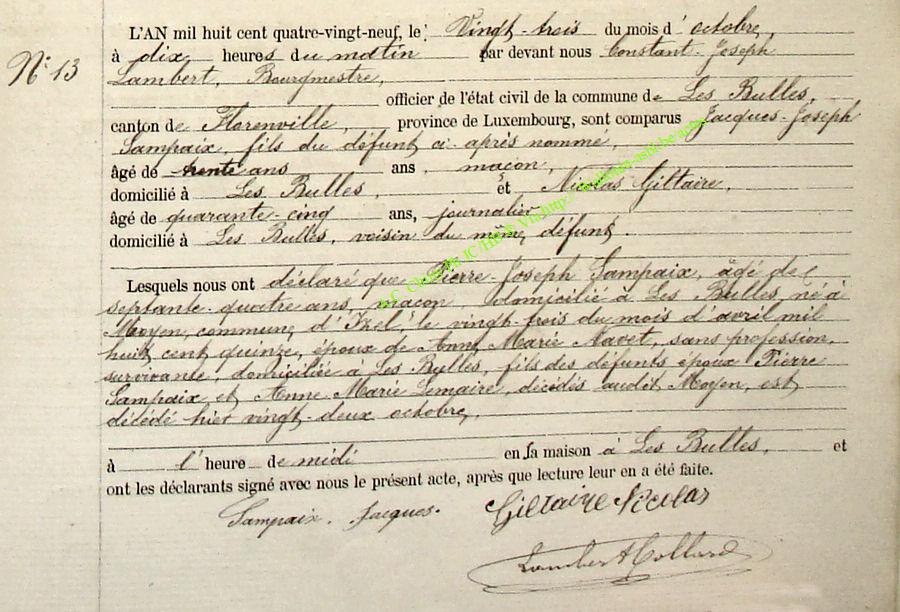 L'AN mil huit cent quatre-vingt-neuf, le Vingt-trois du mois d'octobre,
à dix heures du matin par devant nous Constant-Joseph
N° 13
Lambert, Bourgmestre,
officier de l'état civil de la commune de Les Bulles,
canton de Florenville, province de Luxembourg, sont comparus Jacques-Joseph
Sampaix, fils du défunt ci-après nommé,
âgé de trente ans ans, maçon,
domicilié à Les Bulles, et Nicolas Giltaire,
âgé de quarante-cinq ans, journalier
domicilié à Les Bulles, voisin du même défunt.
Lesquels nous ont déclaré que Pierre-Joseph Sampaix, âgé de
septante-quatre ans, maçon, domicilié à Les Bulles, né à
Moyen, commune d'Izel, le vingt-trois du mois d'avril mil
huit cent quinze, époux de Anne Marie Navet, sans profession,
survivante, domiciliée à Les Bulles, fils des défunts époux Pierre
Sampaix et Anne Marie Lemaire, décédés audit Moyen, est
décédé hier vingt-deux octobre,
à l'heure de midi en sa maison à Les Bulles, et
ont les déclarants signé avec nous le présent acte, après que lecture leur en a été faite.
Sampaix. Jacques. Giltaire Nicolas
Lambert Collard